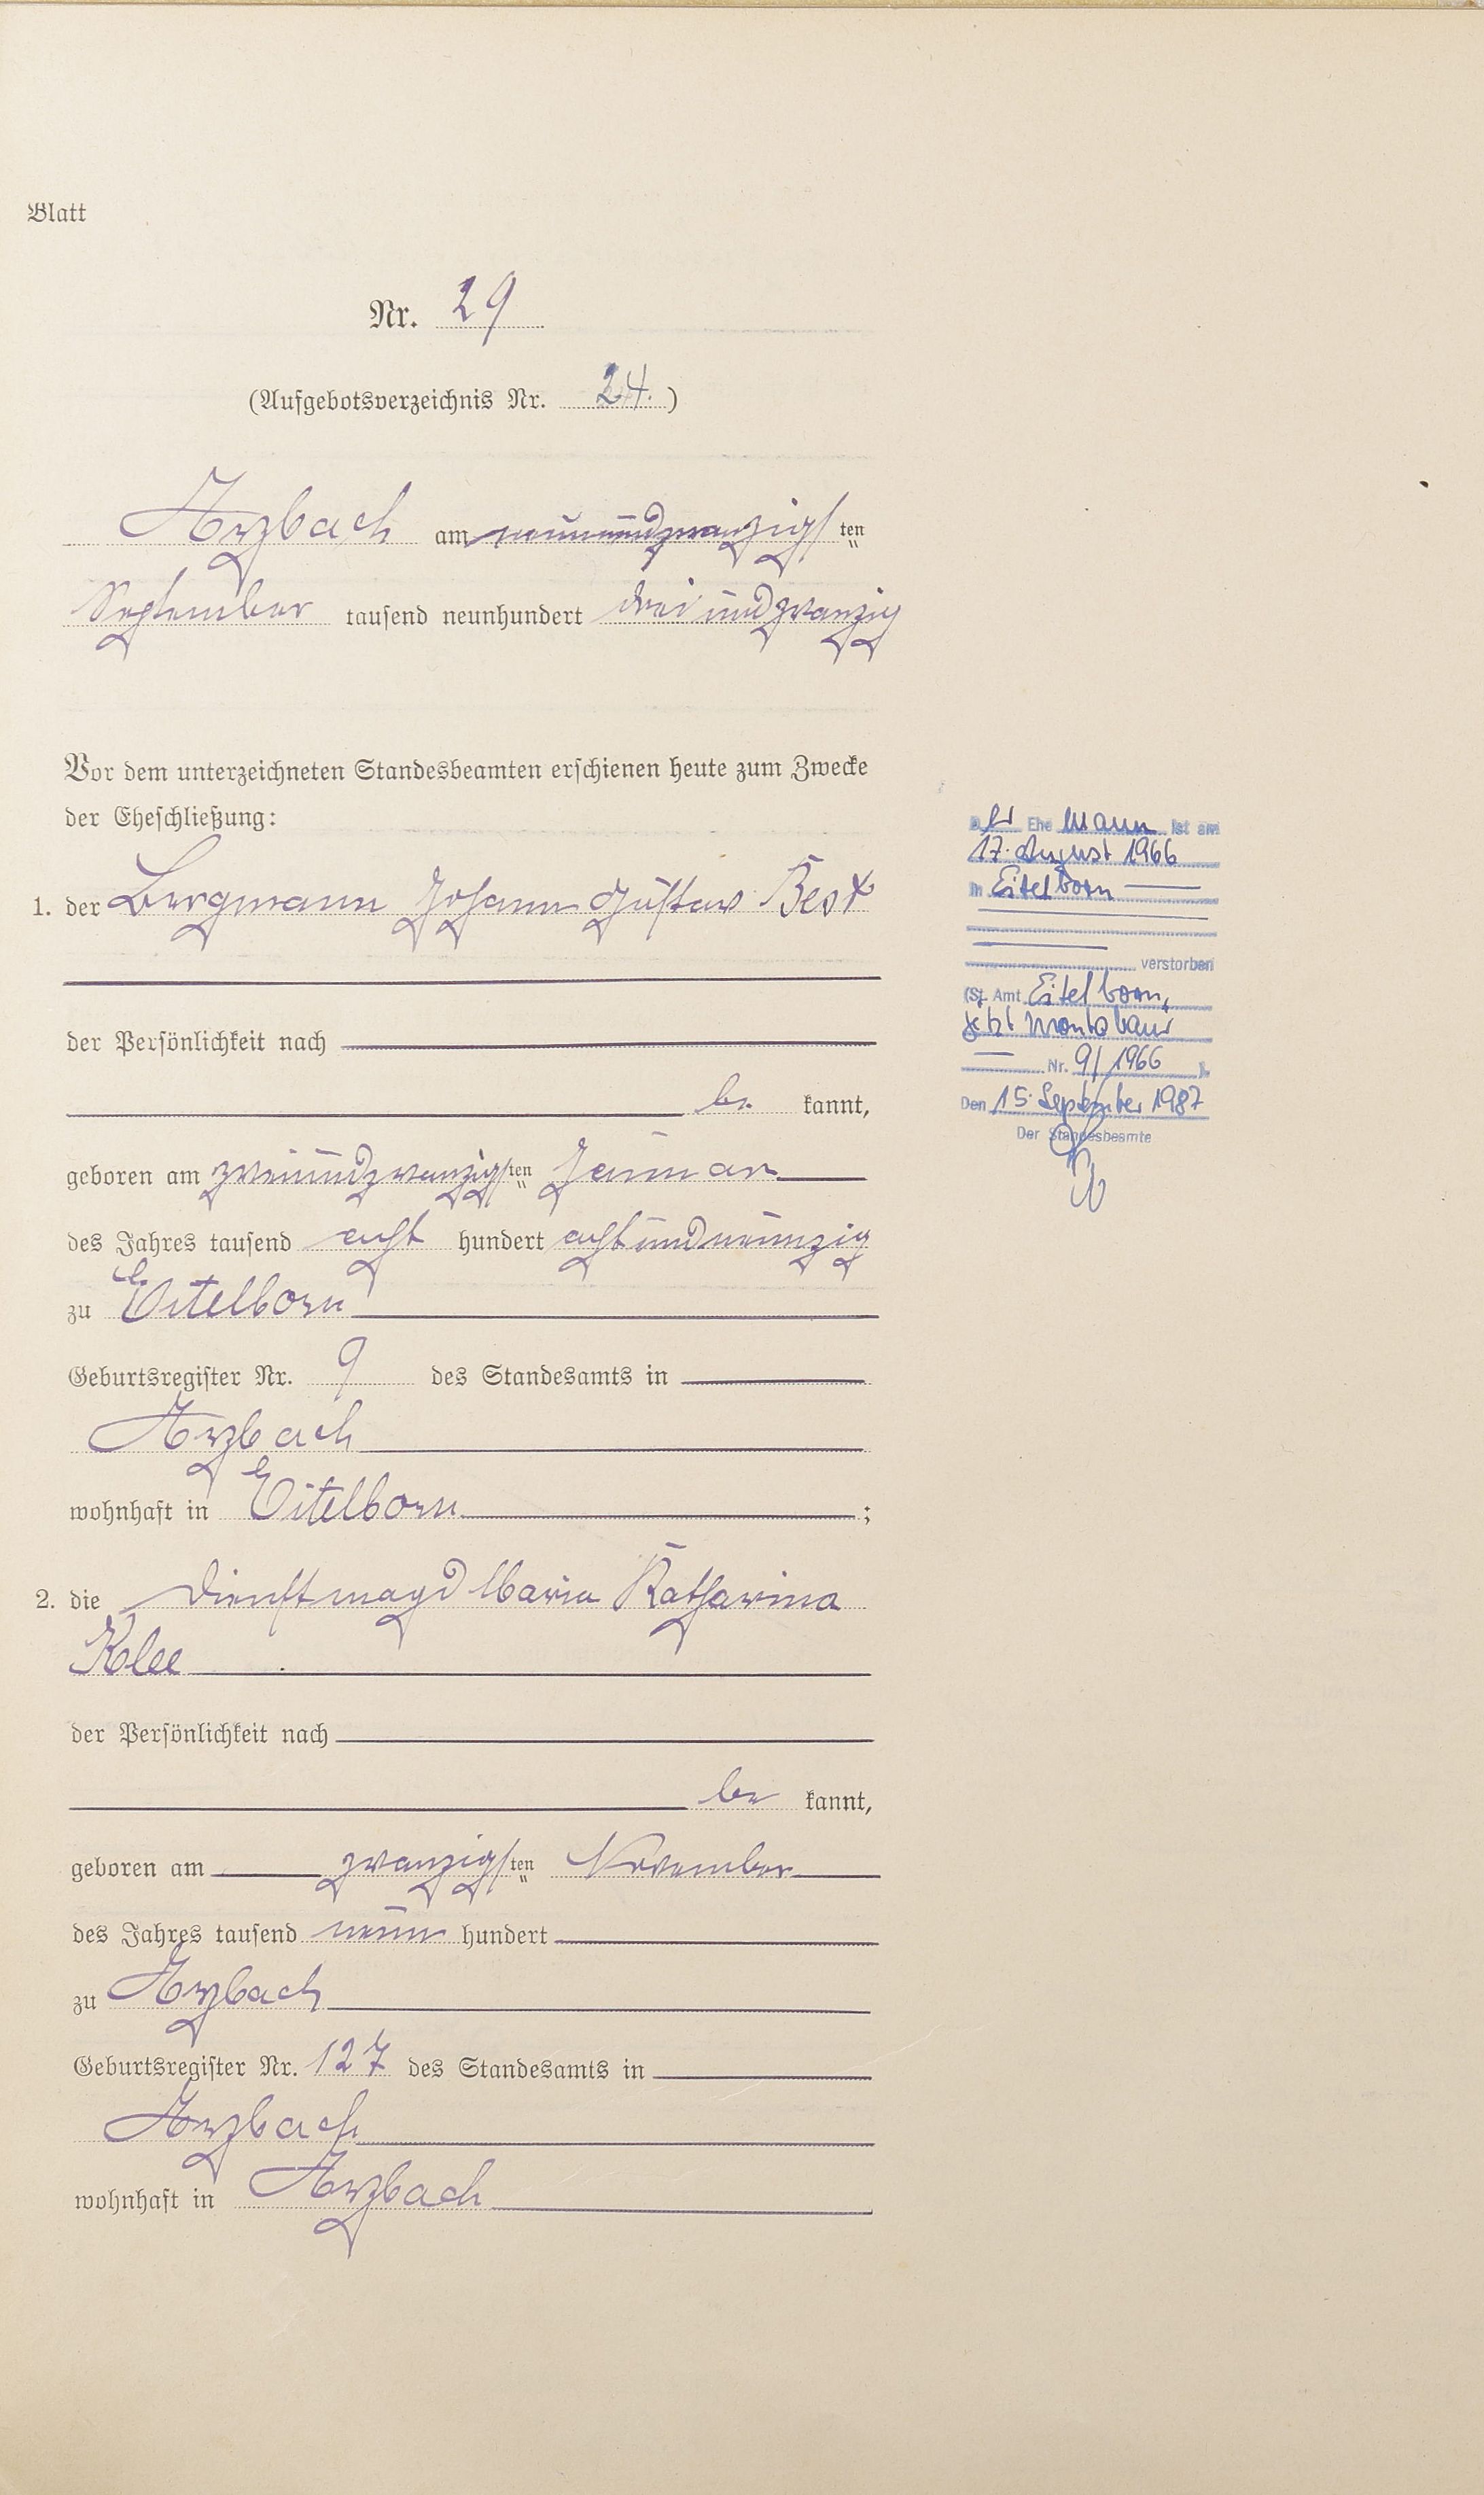 Blatt
Nr. 29
(Aufgebotsverzeichnis Nr. 24.)
Arzbach am neunundzwanzigsten
September tausend neunhundert dreiundzwanzig
Vor dem unterzeichneten Standesbeamten erschienen heute zum Zwecke
der Eheschließung:
1. der Bergmann Johann Gustav Best
der Persönlichkeit nach
be kannt,
geboren am zweiundzwanzigsten Januar
des Jahres tausend acht hundert achtundneunzig
zu Eitelborn
Geburtsregister Nr. 9 des Standesamts in
Arzbach
wohnhaft in Eitelborn ;
2. die Dienstmagd Maria Katharina
Klee
der Persönlichkeit nach
be kannt,
geboren am zwanzigsten November
des Jahres tausend neun hundert
zu Arzbach
Geburtsregister Nr. 127 des Standesamts in
Arzbach
wohnhaft in Arzbach
Der Ehe Mann ist am
17. August 1966
in Eitelborn
verstorben
(St. Amt Eitelborn,
jetzt Montabaur
Nr. 9/1966 ).
Den 15. September 1987
Der Standesbeamte